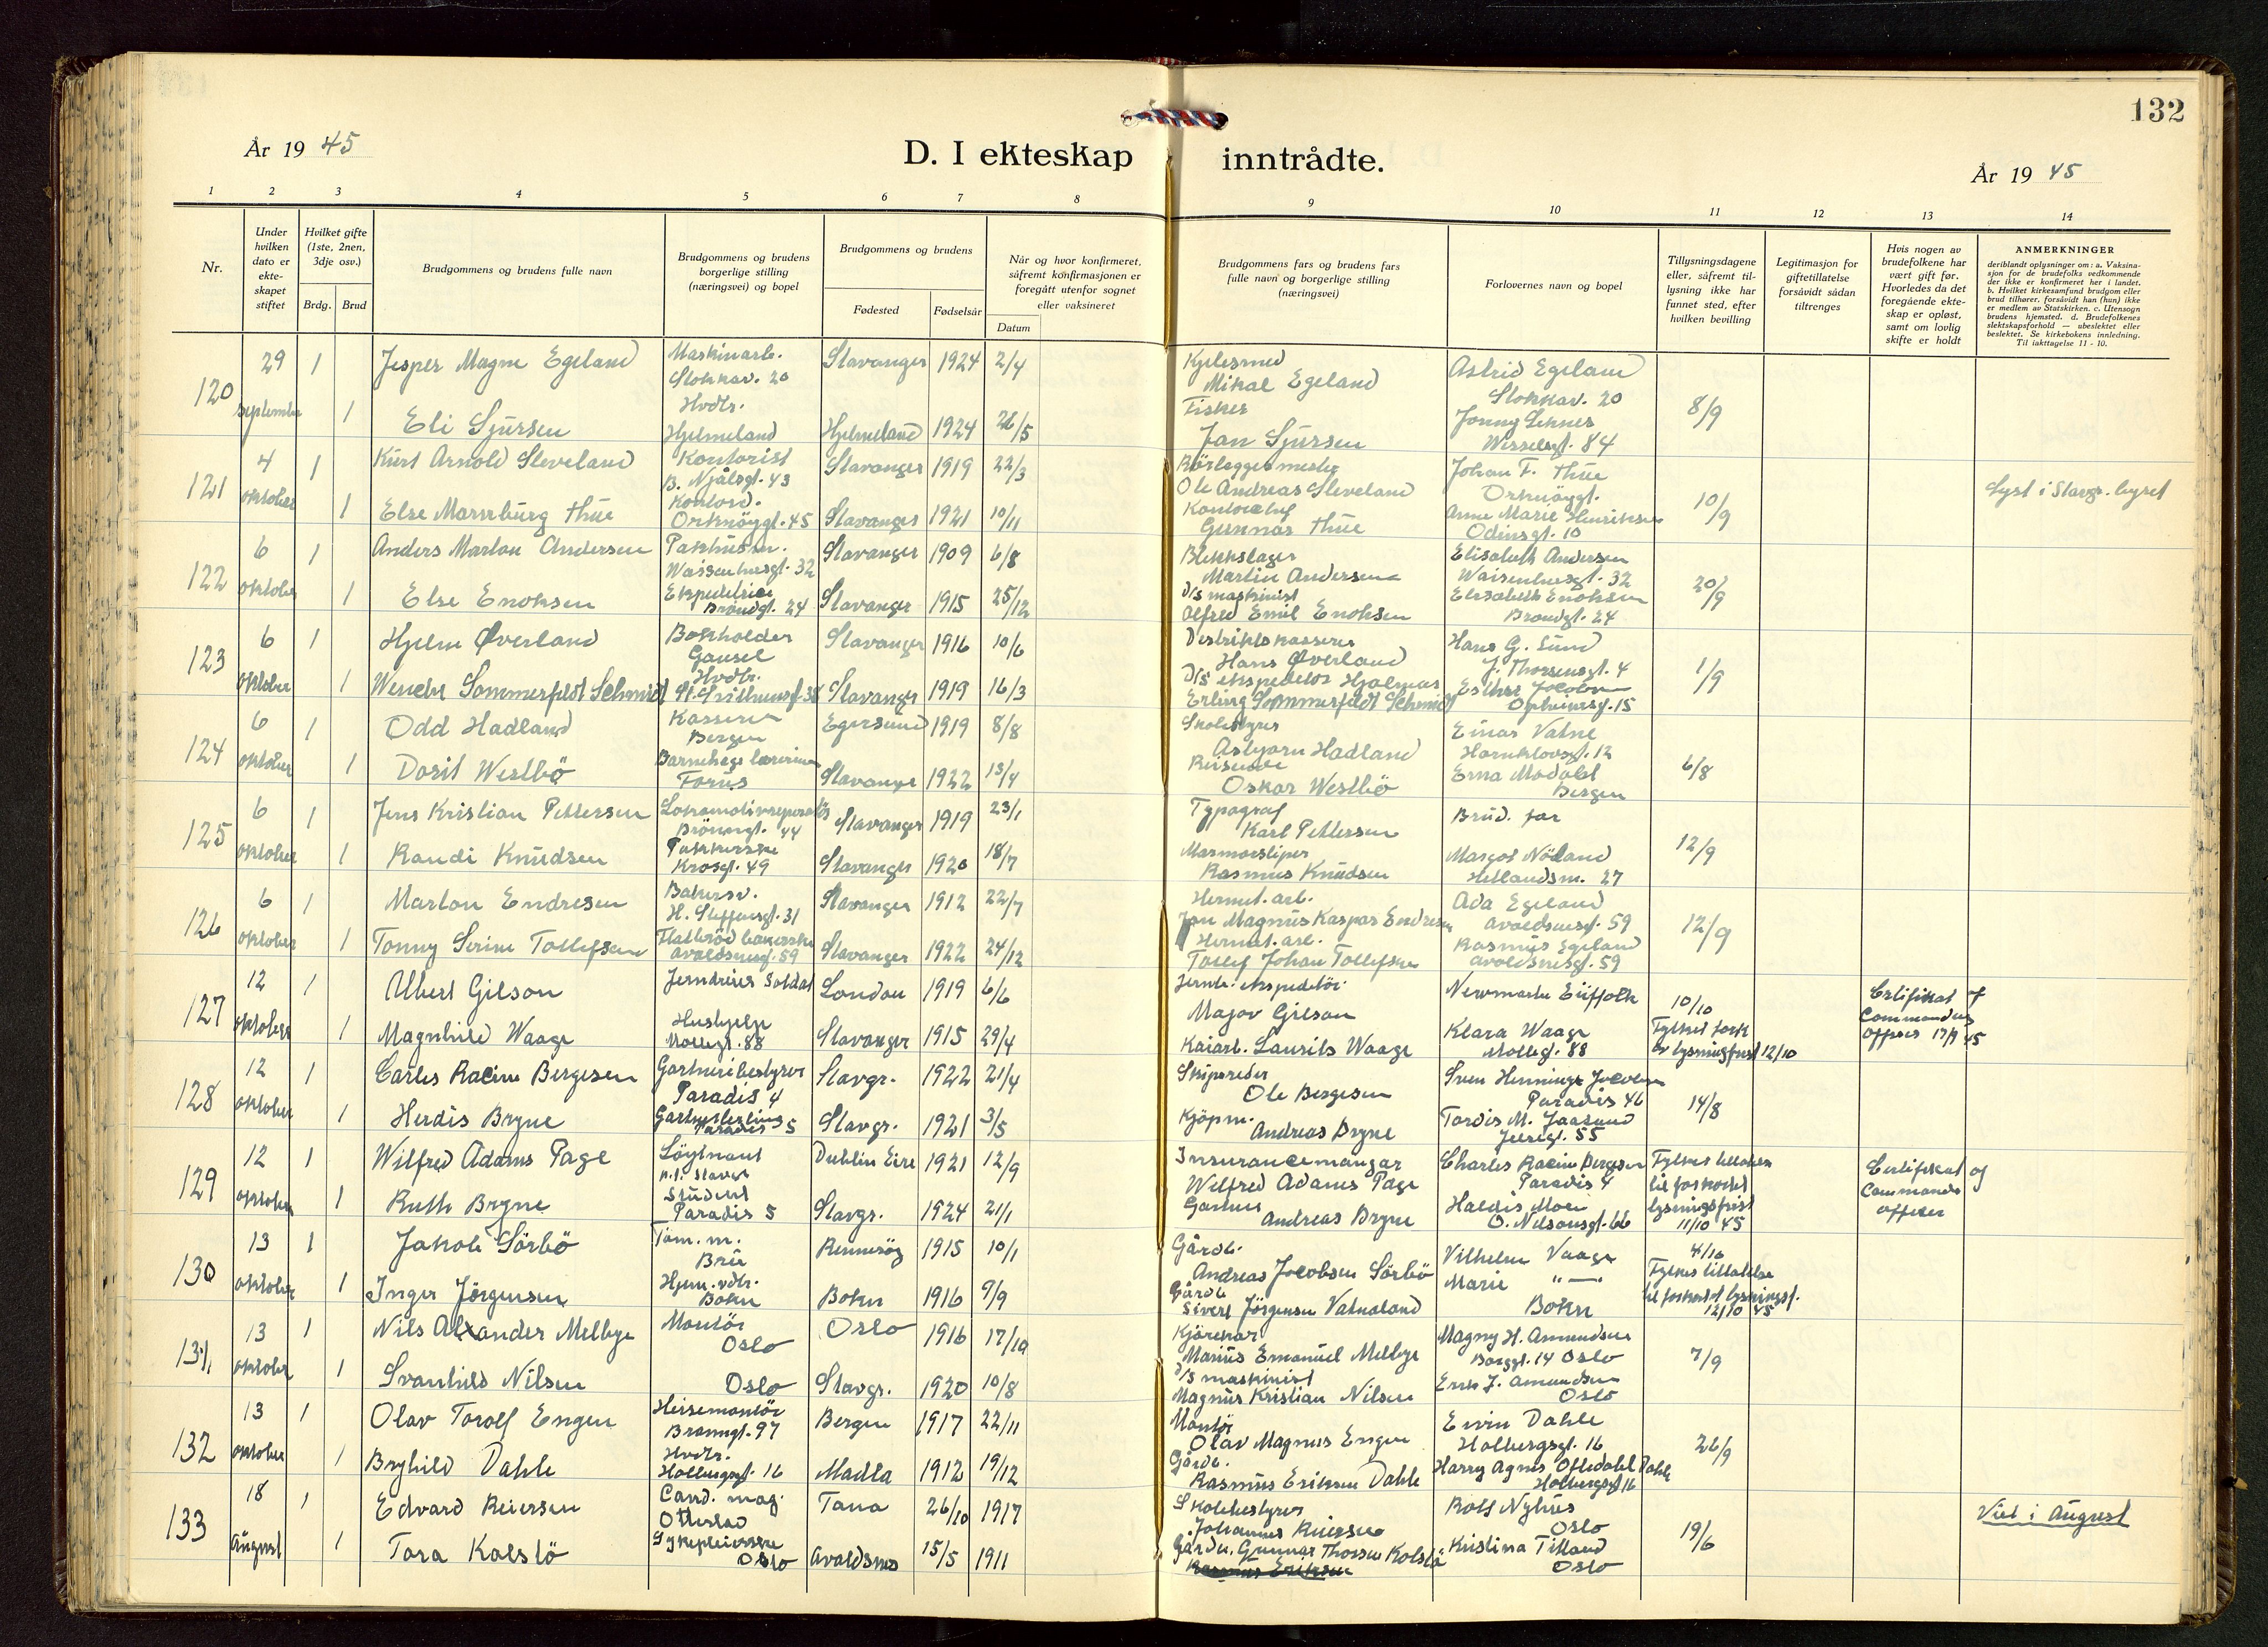 132
År 1945
D. I ekteskap inntrådte.
År 1945
1 2 3 4 5 6 7 8 9 10 11 12 13 14
Nr.
Under hvilken dato er ekteskapet stiftet
Hvilket gifte (1ste, 2nen, 3dje osv.)
Brdg. Brud
Brudgommens og brudens fulle navn
Brudgommens og brudens borgerlige stilling (næringsvei) og bopel
Brudgommens og brudens
Fødested Fødselsår
Når og hvor konfirmeret, såfremt konfirmasjonen er foregått utenfor sognet eller vaksineret
Datum
Brudgommens fars og brudens fars fulle navn og borgerlige stilling (næringsvei)
Forlovernes navn og bopel
Tillysningsdagene eller, såfremt tillysning ikke har funnet sted, efter hvilken bevilling
Legitimasjon for giftetillatelse forsåvidt sådan tiltrenges
Hvis nogen av brudefolkene har vært gift før. Hvorledes da det foregående ekteskap er opløst, samt om lovlig skifte er holdt
ANMERKNINGER
deriblandt oplysninger om: a. Vaksinasjon for de brudefolks vedkommende der ikke er konfirmeret her i landet. b. Hvilket kirkesamfund brudgom eller brud tilhører, forsåvidt han (hun) ikke er medlem av Statskirken. c. Utensogn brudens hjemsted. d. Brudefolkenes slektskapsforhold — ubeslektet eller beslektet. Se kirkebokens innledning. Til iakttagelse 11 - 10.
120 29 september 1 Jesper Magne Egeland Maskinarb. Stokkav. 20 Stavanger 1924 2/4 Kjelesmed Mikal Egeland Astrid Egeland Stokkav. 20 8/9
1 Eli Sjursen Hvdtr. Hjelmeland Hjelmeland 1924 26/5 Fisker Jan Sjursen Jonny Wesselsgt. 84
121 4 oktober 1 Kurt Arnold Sleveland Kontorist B. Njålsgt. 43 Stavanger 1919 22/3 Rörleggermester Ole Andreas Sleveland Johan F. Thue Orknöygt. 10/9 Lyst i Stavgr.
1 Else Thue Kontord. Orknöygt. 45 Stavanger 1921 10/11 Gunnar Thue Anne Marie Henriksen Odinsgt. 10
122 6 oktober 1 Anders Marton Andersen Pakhusm. Waisenhusgt. 32 Stavanger 1909 6/8 Blikkslager Martin Andersen Elisabeth Andersen Waisenhusgt. 32 20/9
1 Else Enoksen Ekspeditrise 24 Stavanger 1915 25/12 D/s maskinist Alfred Emil Enoksen Elisabeth Enoksen 24
123 6 oktober 1 Hjelm Øverland Bokholder Gausel Stavanger 1916 10/6 Distriktskasserer Hans Øverland Hans G. Sund J. Thorsensgt. 4 1/9
1 Wenche Sommerfeldt Schmidt Hvdtr. St. Svithunsgt. 38 Stavanger 1919 16/3 D/s ekspeditör Hjalmar Erling Sommerfeldt Schmidt Esther Jacobsen 15
124 6 oktober 1 Odd Hadland Kasserer Bergen Egersund 1919 8/8 Skolestyrer Asbjørn Hadland Einar Vatne 12 6/8
1 Dorit Westbö Barnehage lærerinne Forus Stavanger 1922 13/4 Reisende Oskar Westbö Erna Bergen
125 6 oktober 1 Jens Kristian Pettersen 44 Stavanger 1919 23/1 Typograf Karl Pettersen Brud. far 12/9
1 Randi Knudsen Pakkerske Krosgt. 49 Stavanger 1920 18/7 Marmorsliper Rasmus Knudsen Margot Nöland Hetlandsm. 27
126 6 oktober 1 Marton Endresen Bakersv. H. Steffensgt. 31 Stavanger 1912 22/7 Hermet. arb. Jan Magnus Kaspar Endresen Ada Egeland Avaldsnesgt. 59 12/9
1 Tonny Serine Tollefsen Flatbröd bakerske Avaldsnesgt. 59 Stavanger 1922 24/12 Hermet. arb. Tollef Johan Tollefsen Rasmus Egeland Avaldsnesgt. 59
127 12 oktober 1 Albert Gilson Soldat London 1919 6/6 Jernb. ekspeditör Major Gilson Newmarke Suffolk 10/10 Certifikat of Commanding Officer 13/9 45
1 Magnhild Waage Hushjelp Möllegt. 88 Stavanger 1915 29/4 Kaiarb. Laurits Waage Klara Waage Möllegt. 88 Fylket fork av lysningsfrist 12/10
128 12 oktober 1 Carles Racine Bergesen Gartneribestyrer Paradis 4 Stavgr. 1922 21/4 Skipsreder Ole Bergesen Sven Hennings Jacobsen Paradis 46 14/8
1 Herdis Bryne Paradis 5 Stavgr. 1921 3/5 Kjöpm. Andreas Bryne Tordis M. Jaasund 55
129 12 oktober 1 Wilfred Adams Page Löytnant Dublin Eire 1921 12/9 Insurancemangar Wilfred Adams Page Charles Racine Bergesen Paradis 4 Fylkes tillatelse til forkortet lysningsfrist 11/10 45 Certifikat of Commando officer
1 Ruth Bryne Student Paradis 5 Stavgr. 1924 21/1 Gartner Andreas Bryne Haldis Moe O. Nilsonsgt. 66
130 13 oktober 1 Jakob Sörbö Töm. m. Bru Rennesöy 1915 10/1 Gårdb. Andreas Jacobsen Sörbö Vilhelm Vaage 4/10
1 Inger Jörgensen Hjem. vdtr. Bokn Bokn 1916 9/9 Gårdb Sivert Jörgensen Vatnaland Marie "—" Bokn Fylkes tillatelse til forkortet lysningsf. 12/10 45
131 13 oktober 1 Nils Alxander Melbye Montör Oslo Oslo 1916 17/10 Kjörekar Marius Emanuel Melbye Magny H. Amundsen Borggt. 14 Oslo 7/9
1 Svanhild Nilsen Oslo Stavgr. 1920 10/8 D/s maskinist Magnus Kristian Nilsen Erik J. Amundsen Oslo
132 13 oktober 1 Olav Torolf Engen Heisemontör 97 Bergen 1917 22/11 Montör Olav Magnus Engen Ervin Dahle Holbergsgt. 16 26/9
1 Brghild Dahle Hvdtr. Holbergsgt. 16 Madla 1912 19/12 Gårdb. Rasmus Eriksen Dahle Harry Agnes Oftedahl Dahle Holbergsgt 16
133 18 August 1 Edvard Reiersen Cand. mag. Ottestad Tana 26/10 1917 Skolebestyrer Johannes Reiersen Rolf Nyhus Oslo 19/6 Viet i August
1 Tora Kolstö Sykepleierske Oslo Avaldsnes 15/5 1911 Gårdbr. Gunnar Thorsen Kolstö Kristina Tilland Oslo
Rasmus Eriksen